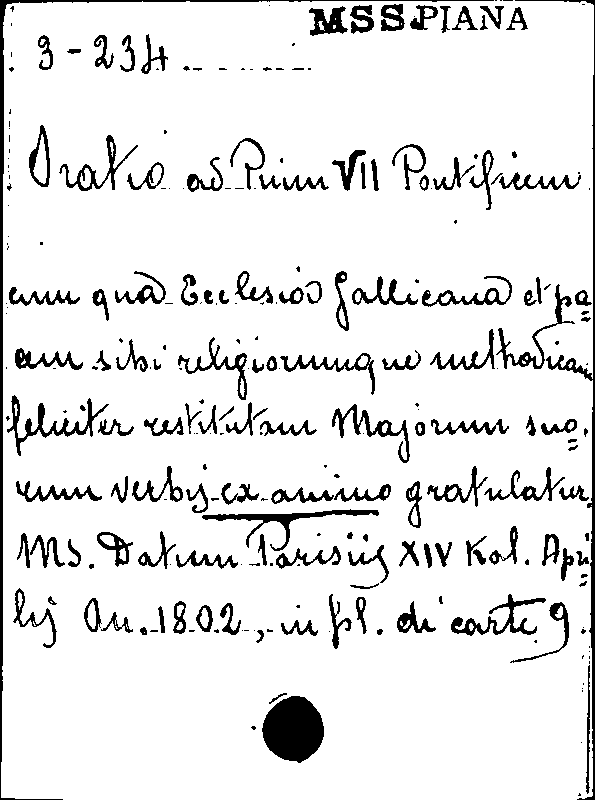 MSS.PIANA
3-234
Oratio ad Pium VII Pontificem
cum quâ Ecclesia Gallicana et pa=
cem sibi religionumque methodicam
feliciter restitutam Majorum suo=
rum verbis ex animo gratulatur.
MS. Datum Parisiis XIV Kal. Apri=
lis An. 1802, in fol. di carte 9.